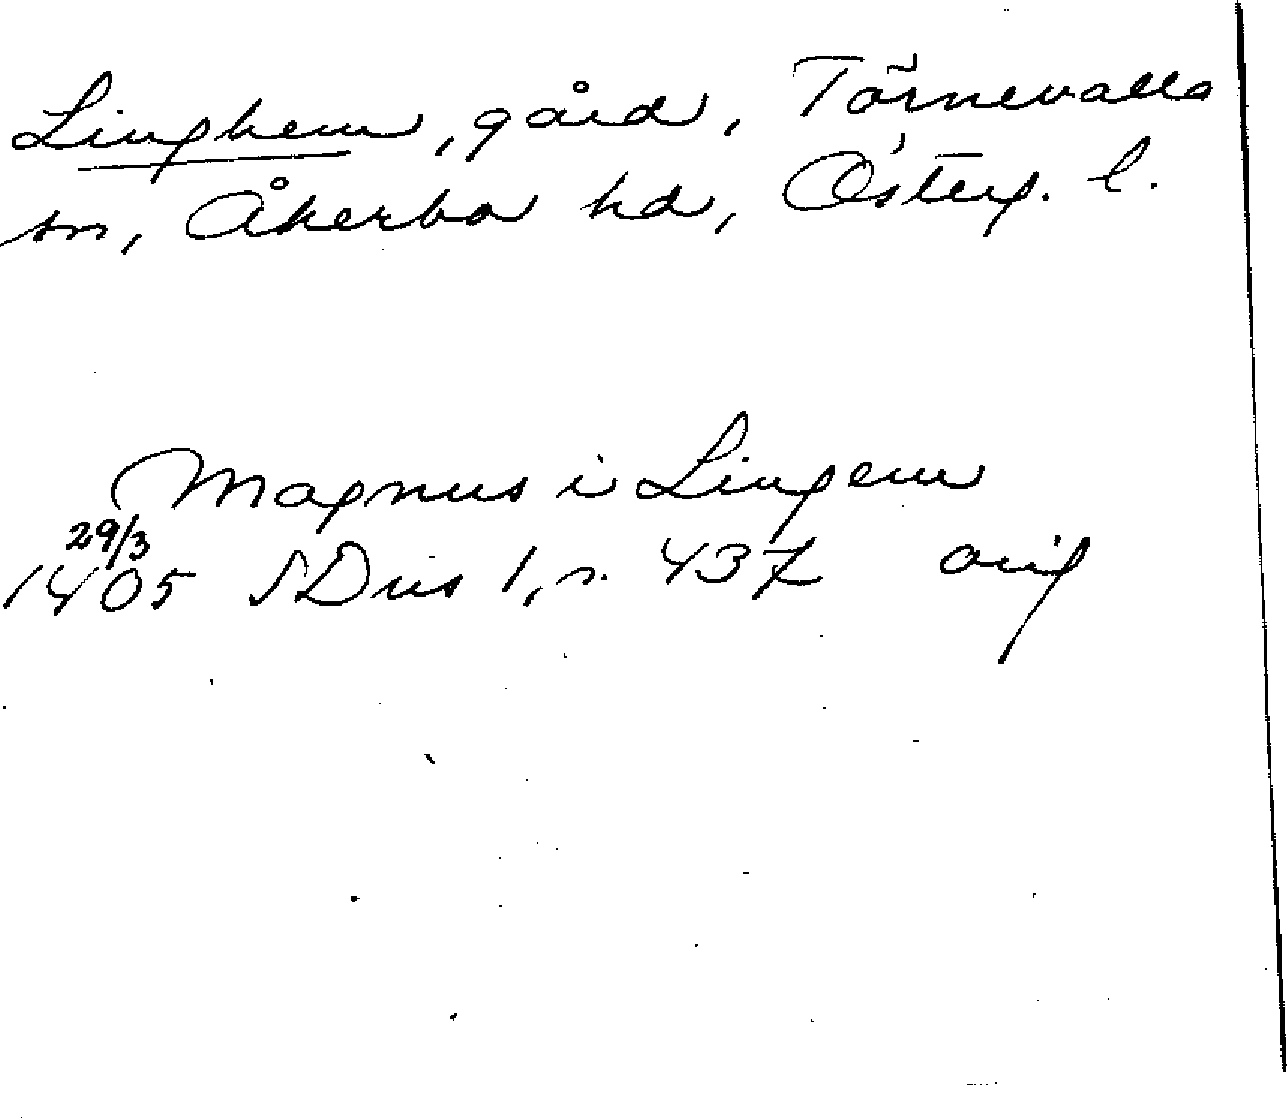 Linghem, gård, Törnevalla
sn, Åkerbo hd, Österg. l.
Magnus i Lingem
29/3
1405 SDns 1, s. 437 orig